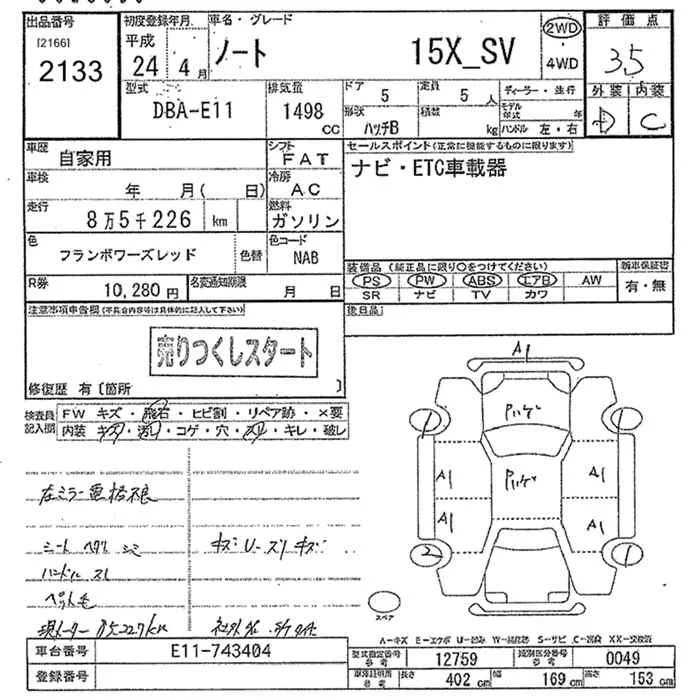 出品番号
[2166]
2133
初度登録年月
平成
24 4月
車名・グレード
ノート 15X_SV
2WD
・
4WD
評価点
3.5
外装 内装
D C
型式
DBA-E11
排気量
1498
CC
ドア
5
定員
5 人
ディーラー・並行
形状
ハッチB
積数
kg
モデル年式 年
ハンドル 左・右
車歴
自家用
シフト
FAT
セールスポイント(正常に機能するものに限ります)
ナビ・ETC車載器
車検
年 月( 日)
冷房
AC
走行
8万5千226 km
燃料
ガソリン
色
フランボワーズレッド
色替
色コード
NAB
R券
10,280 円
名変通知期限
月 日
装備品(純正品に限り○をつけてください)
PS PW ABS エアB AW
SR ナビ TV カワ
新車保証書
有・無
後日品
注意事項申告欄(不具合内容等は具体的に記入して下さい)
売りつくしスタート
修復歴 有〔箇所 〕
検査員記入欄
FW キズ・飛石・ヒビ割・リペア跡・×要
内装 キズ・汚れ・コゲ・穴・スレ・キレ・破レ
左ミラー電格不良
シート ヘタリ シミ
キズ U-スリキズ
ハンドル スレ
ペット毛
現メーター 85227km
A1
1
Pハゲ
Pハゲ
A1
A1
A1
A1
2
1
スペア
A-キズ E-エクボ U-凹み W-補修跡 S-サビ C-腐食 XX-交換済
車台番号
E11-743404
登録番号
型式指定番号
参考
12759
類別区分番号
参考
0049
車庫証明用
参考
長さ
402 cm
幅
169 cm
高さ
153 cm